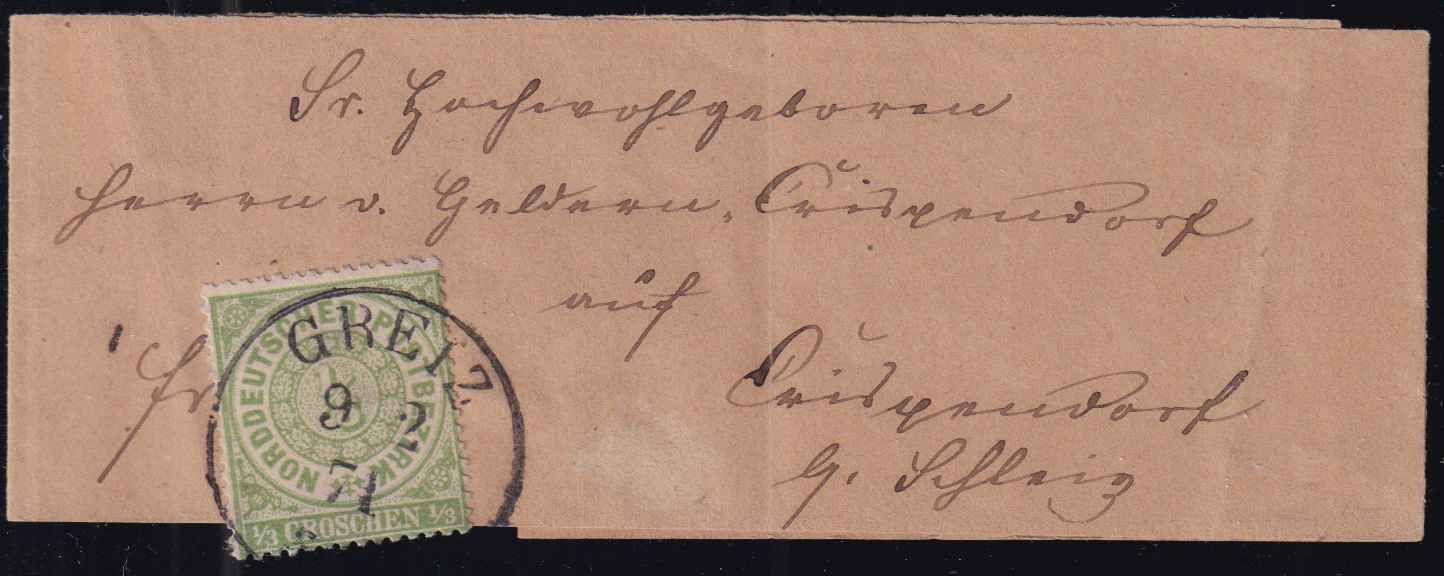 Sr. Hochwohlgeboren
Herrn v. Geldern-Crispendorf
auf
fr
Crispendorf
b. Schleiz
NORDDEUTSCHER POSTBEZIRK
1/3 GROSCHEN 1/3
GREIZ
9 2
71